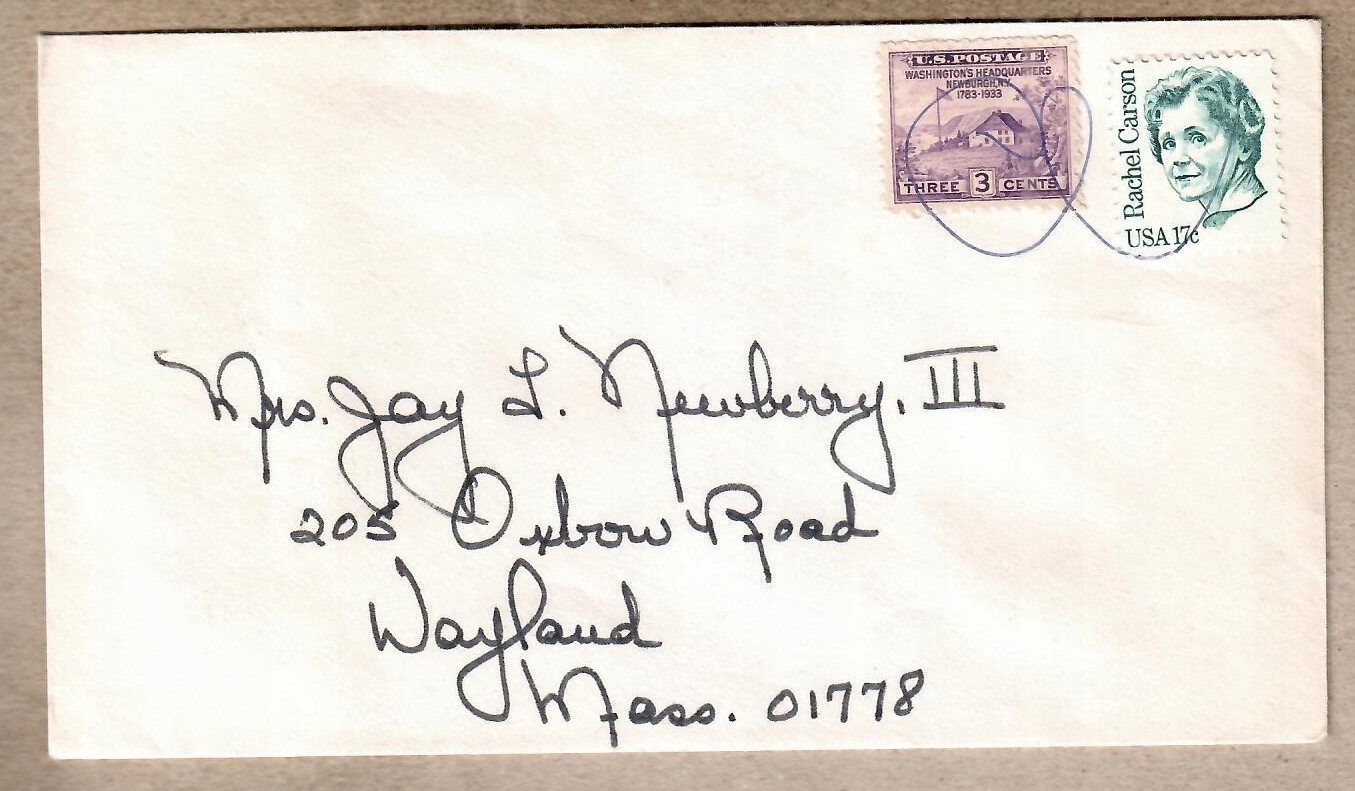 U.S. POSTAGE
WASHINGTON'S HEADQUARTERS
NEWBURGH, N.Y.
1783-1933
THREE 3 CENTS
Rachel Carson
USA 17c
Mrs. Jay L. Newberry, III
205 Oxbow Road
Wayland
Mass. 01778